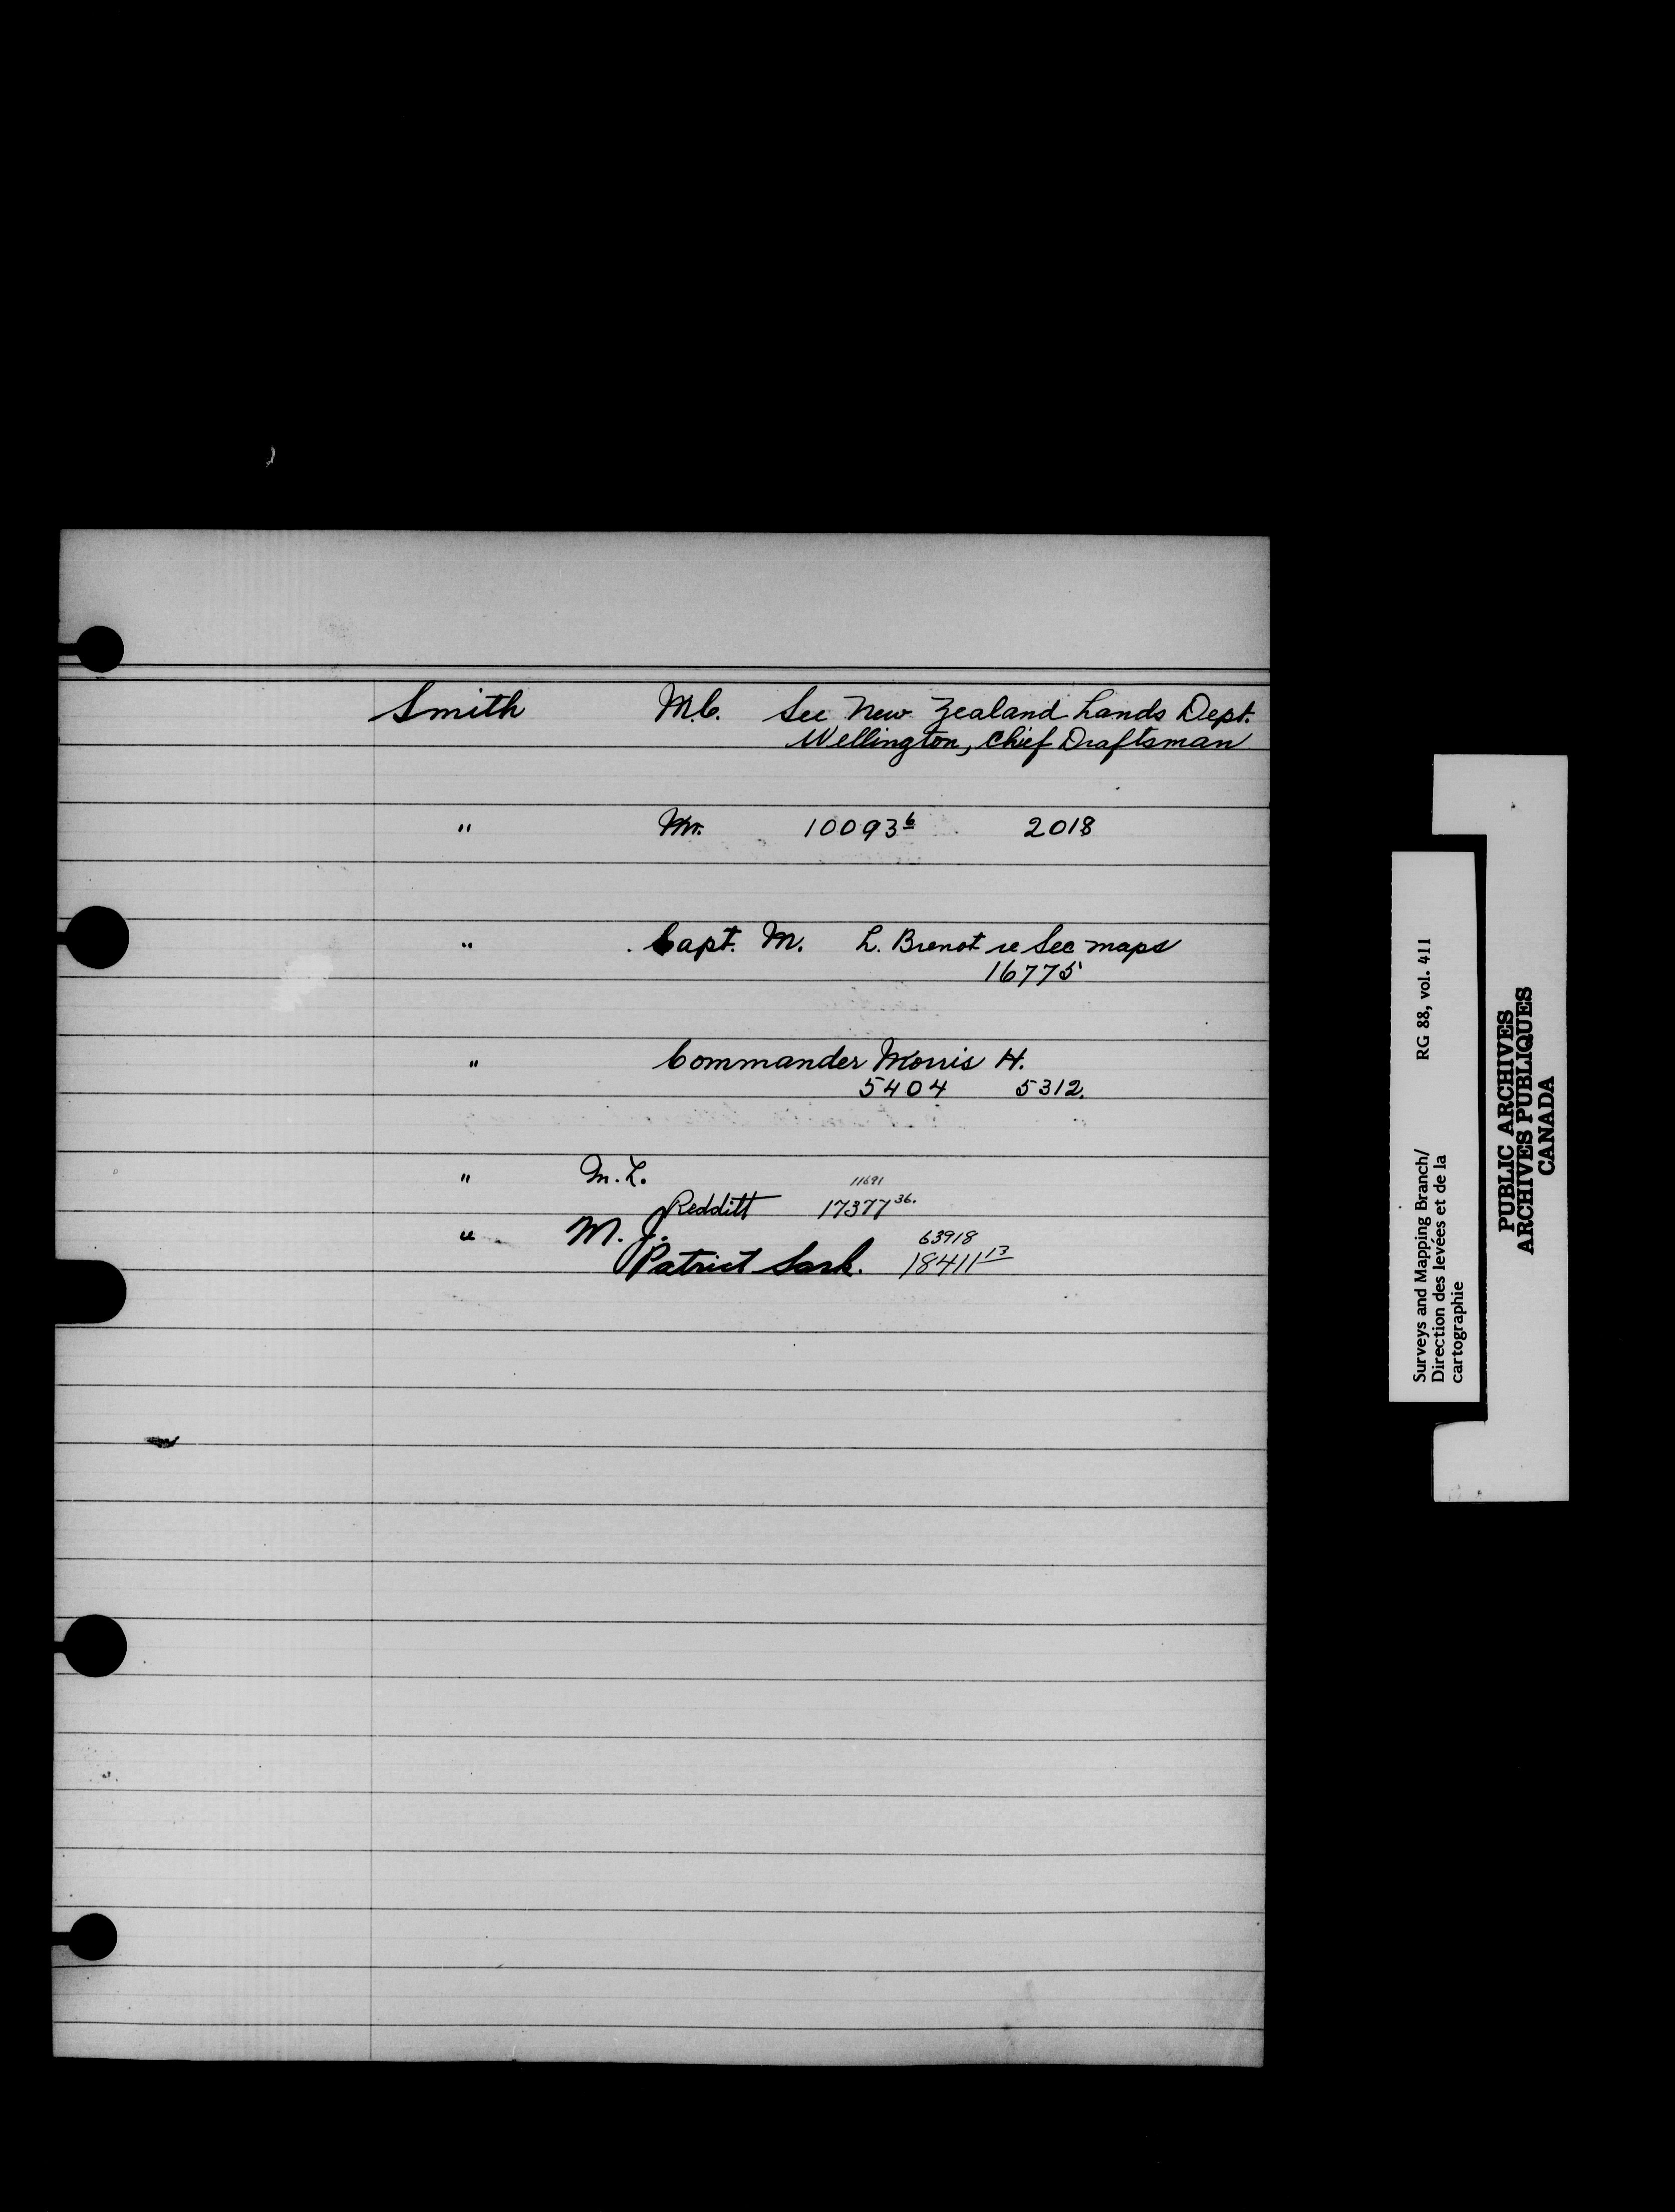 Smith M.C. See New Zealand Lands Dept.
Wellington, Chief Draftsman
" Mr. 10093 6 2018
" Capt. M. L. Brenot re Sec maps
16775
" Commander Morris H.
5404 5312.
" M. L. 11691
Redditt 17377 36.
" M. J. 63918
Patrict Sask. 18411 13
Surveys and Mapping Branch/ RG 88, vol. 411
Direction des levées et de la
cartographie
PUBLIC ARCHIVES
ARCHIVES PUBLIQUES
CANADA